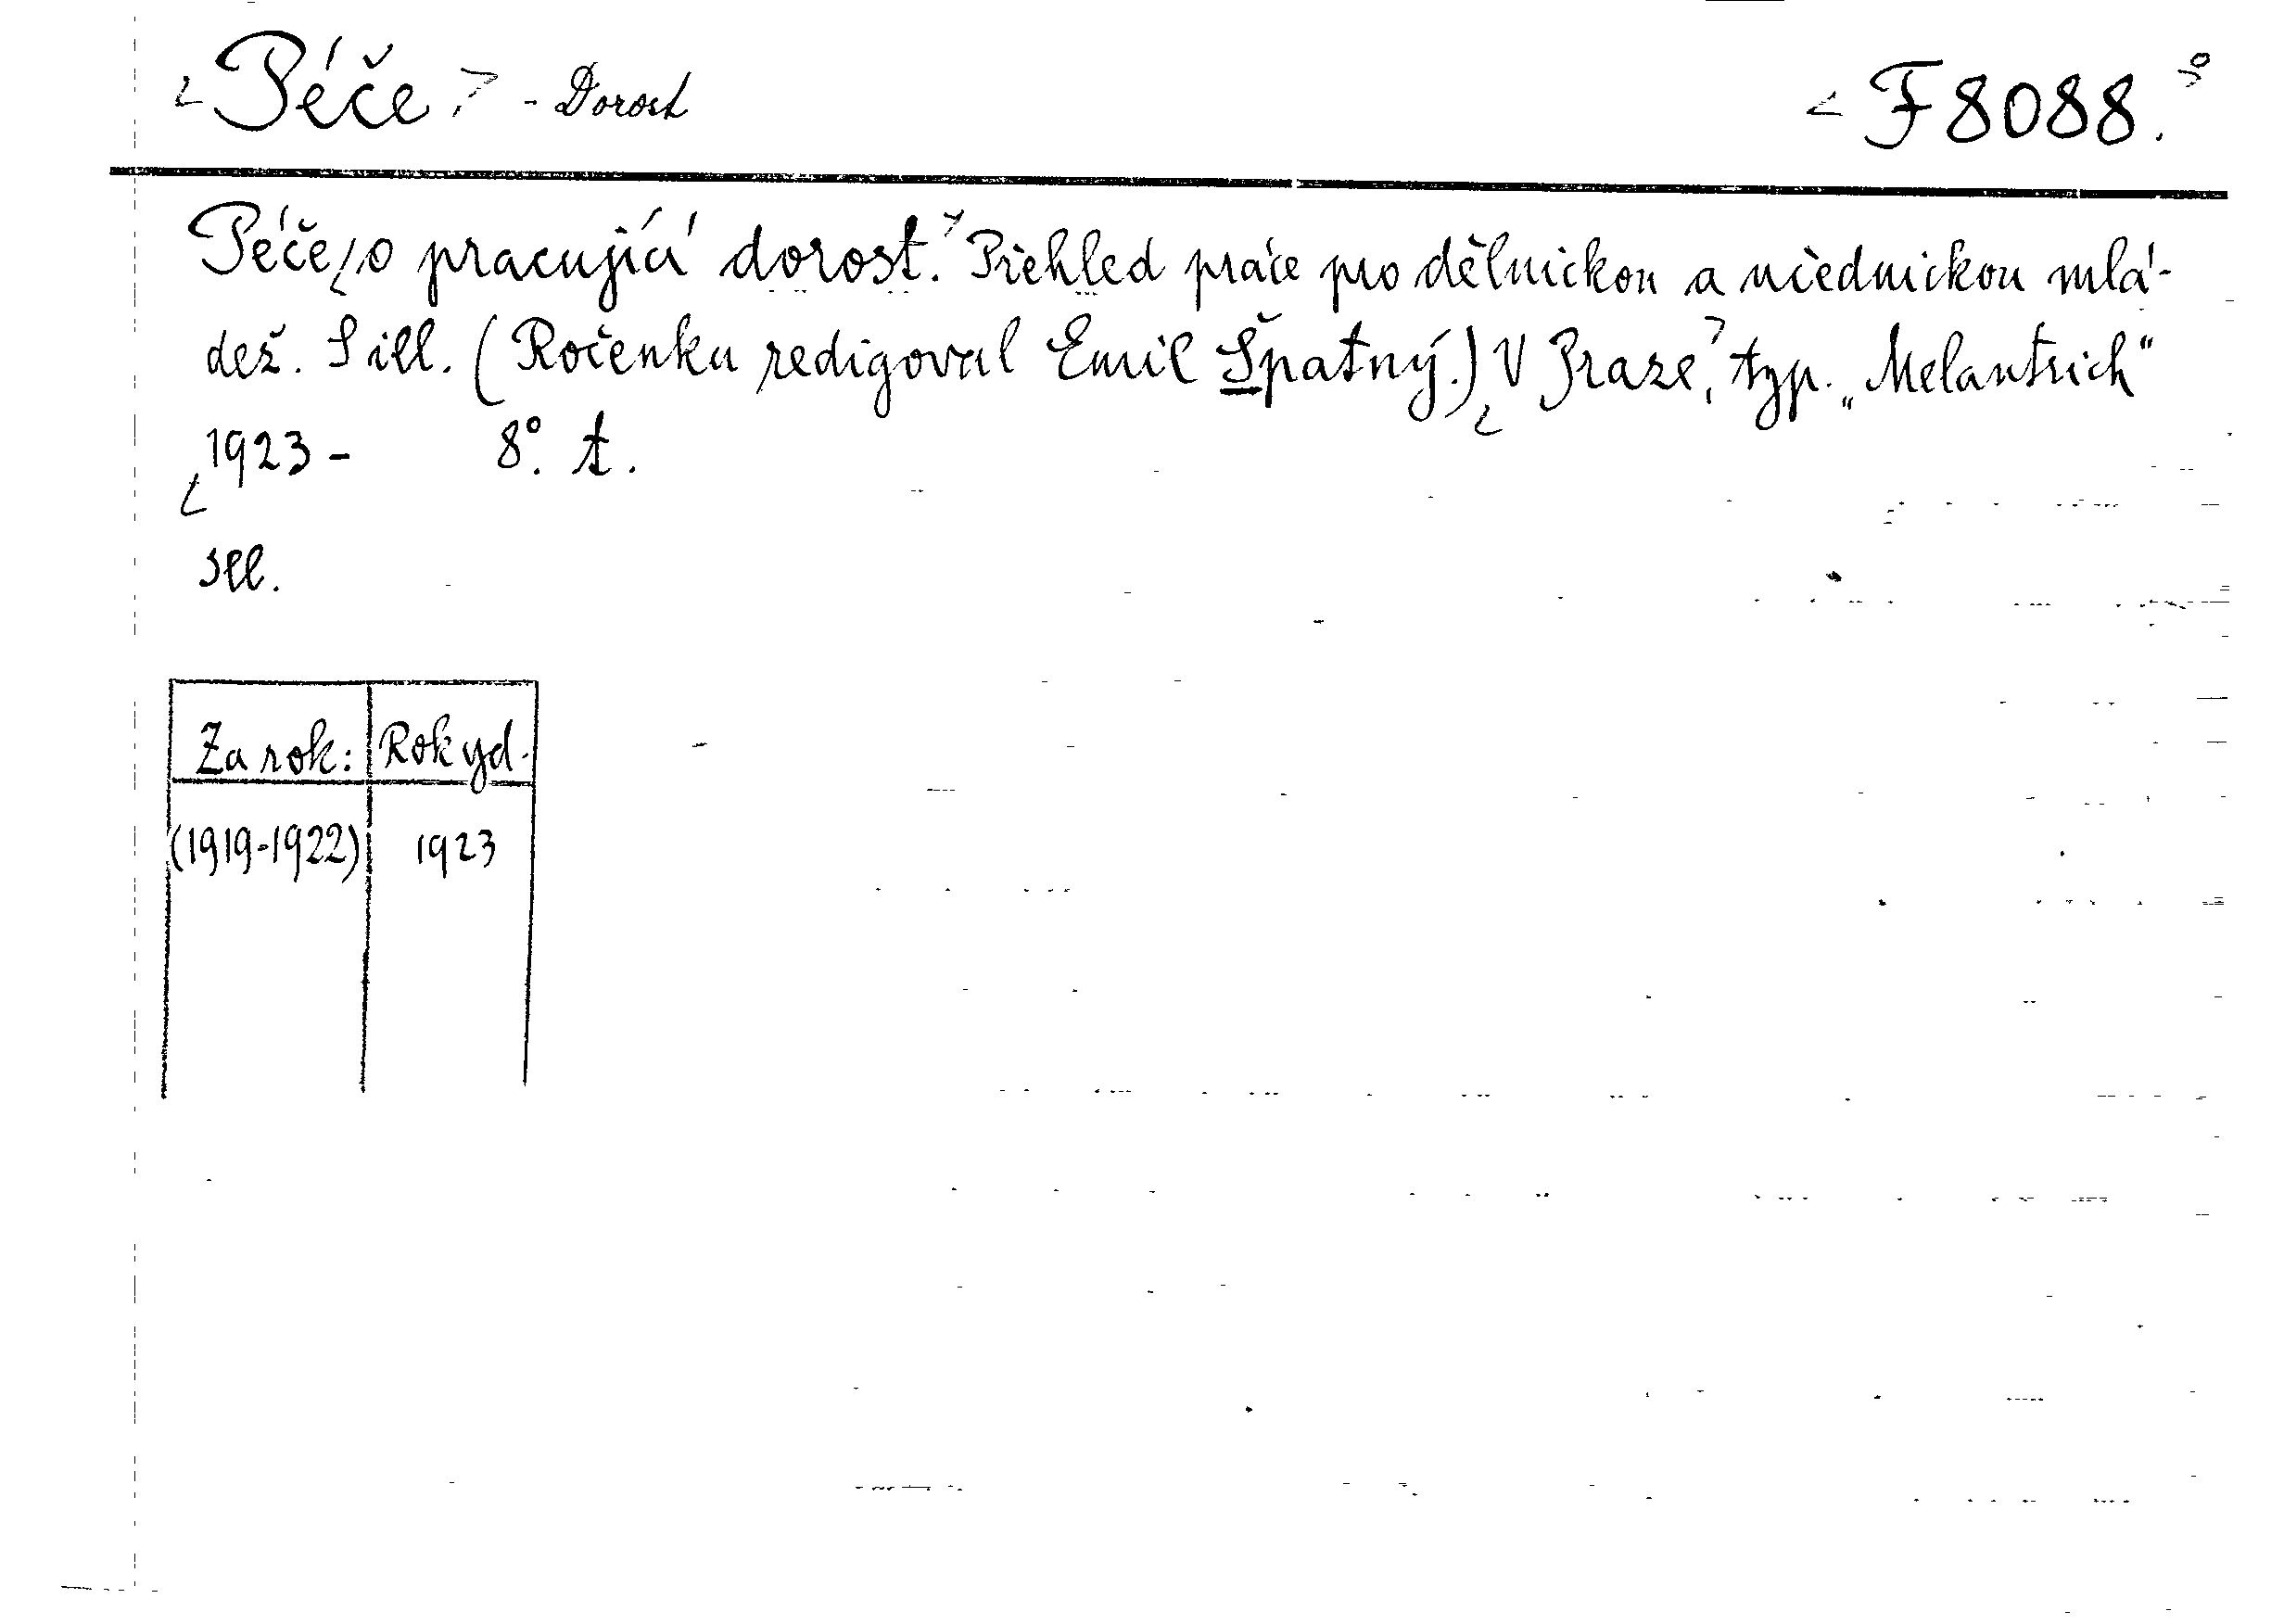 Péče - Dorost F 8088.
Péče o pracující dorost. Přehled práce pro dělnickou a úřednickou mlá-
dež. S ill. (Ročenku redigoval Emil Špatný.) V Praze, typ. „Melantrich“
1923 - 8°. t.
Ill.
Za rok: Rok vyd.
(1919-1922) 1923